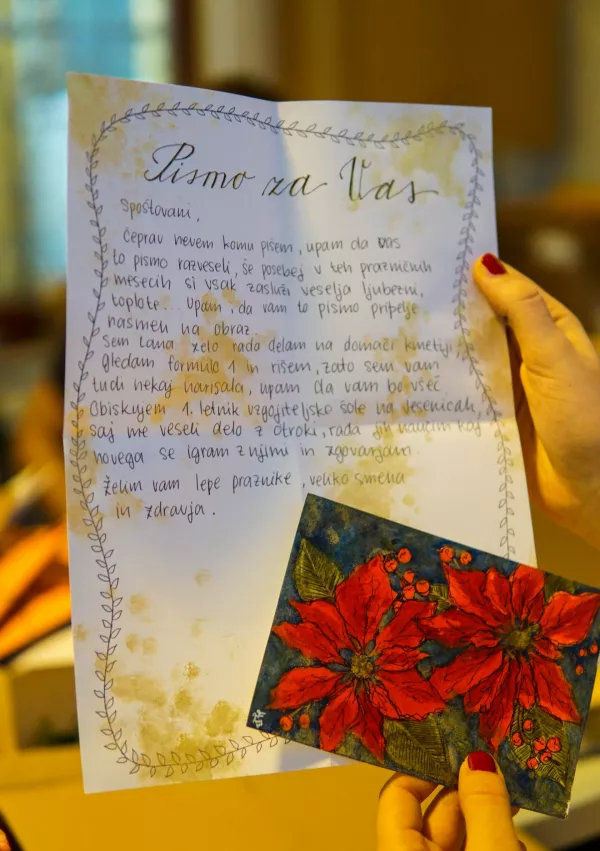 Pismo za Vas
Spoštovani,
čeprav nevem komu pišem, upam da vas
to pismo razveseli, še posebej v teh prazničnih
mesecih si vsak zasluži veselja ljubezni,
toplote... Upam, da vam to pismo pripelje
nasmeh na obraz.
Sem Lana, zelo rada delam na domači kmetiji,
gledam formulo 1 in rišem, zato sem vam
tudi nekaj narisala, upam da vam bo všeč
Obiskujem 1. letnik vzgojiteljske šole na Jesenicah,
saj me veseli delo z otroki, rada jih naučim kaj
novega se igram z njimi in
želim vam lepe praznike, veliko smeha
in zdravja.